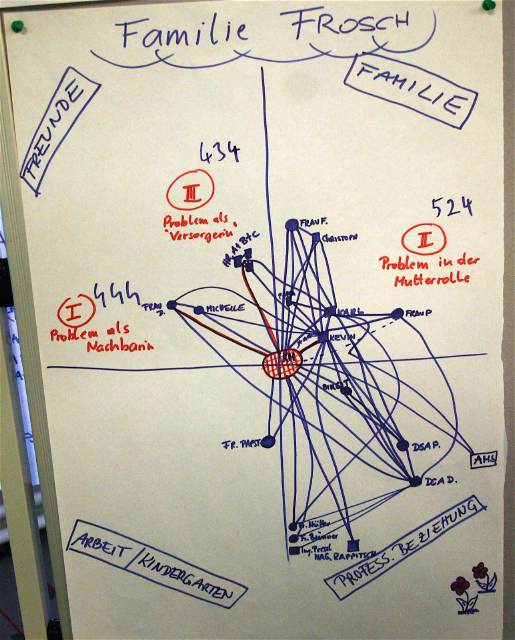 Familie FROSCH
FREUNDE
FAMILIE
434
III
Problem als
"Versorgerin"
524
II
Problem in der
Mutterrolle
FRAU F.
CHRISTOPH
444
I
Problem als
Nachbarin
FRAU
MICHELLE
KARL
KEVIN
FRAU P
BIRGIT
FR. PABST
DSA P.
AHS
DSA D.
Fr. Müller
MAG. RAPPITSCH
ARBEIT / KINDERGARTEN
PROFESS. BEZIEHUNG